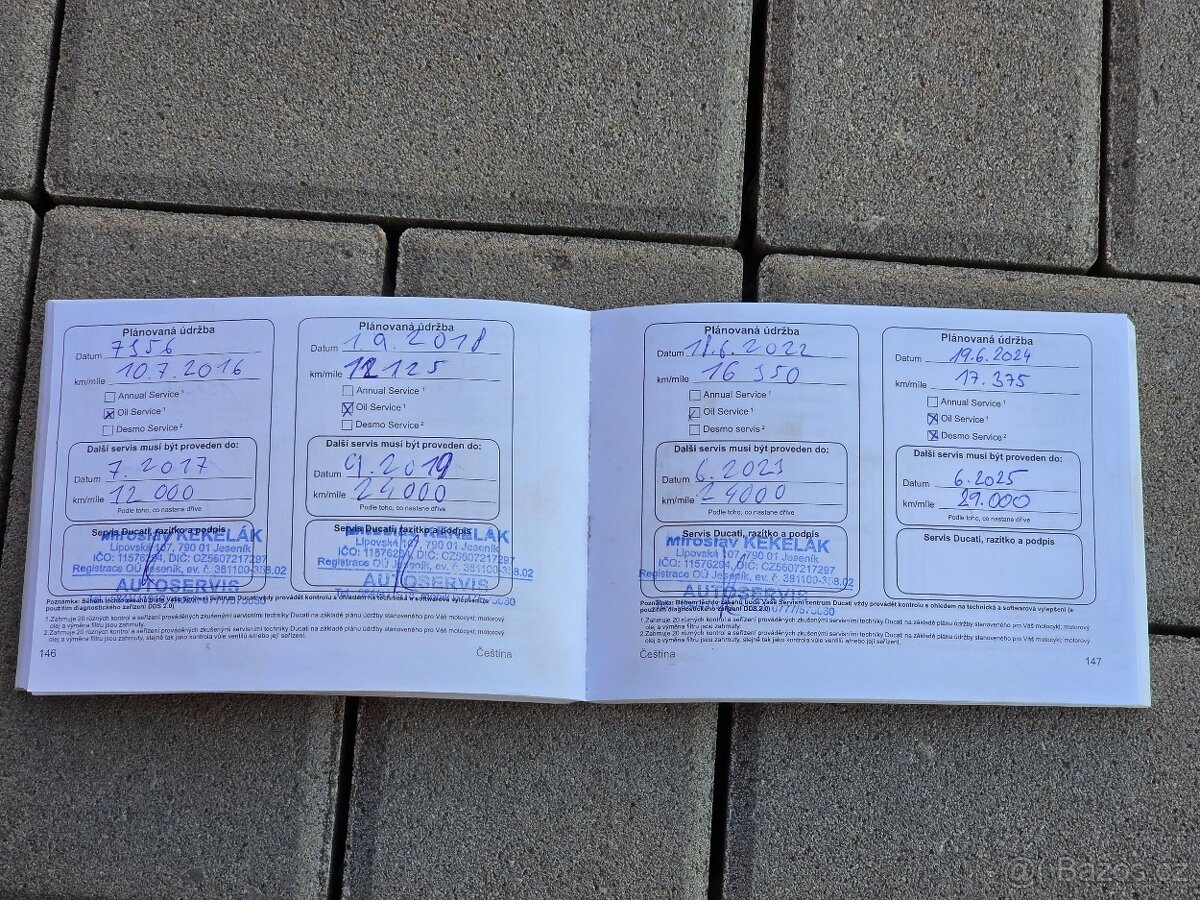 Plánovaná údržba
Datum 7356
km/míle 10.7.2016
Annual Service ¹
Oil Service ¹
Desmo Service ²
Další servis musí být proveden do:
Datum 7.2017
km/míle 12 000
Podle toho, co nastane dříve
Servis Ducati, razítko a podpis
Miroslav KEKELÁK
Lipovská 107, 790 01 Jeseník
IČO: 11576294, DIČ: CZ5607217297
Registrace OÚ Jeseník, ev. č. 381100-358.02
AUTOSERVIS
Plánovaná údržba
Datum 1.9.2018
km/míle 12 125
Annual Service ¹
Oil Service ¹
Desmo Service ²
Další servis musí být proveden do:
Datum 9.2019
km/míle 24000
Podle toho, co nastane dříve
Servis Ducati, razítko a podpis
Miroslav KEKELÁK
Lipovská 107, 790 01 Jeseník
IČO: 11576294, DIČ: CZ5607217297
Registrace OÚ Jeseník, ev. č. 381100-358.02
AUTOSERVIS
Poznámka: Během těchto zásahů bude Vaše Servisní centrum Ducati vždy provádět kontrolu s ohledem na technická a softwarová vylepšení (s
použitím diagnostického zařízení DDS 2.0)
1.Zahrnuje 20 různých kontrol a seřízení prováděných zkušenými servisními techniky Ducati na základě plánu údržby stanoveného pro Váš motocykl; motorový
olej a výměna filtru jsou zahrnuty.
2.Zahrnuje 20 různých kontrol a seřízení prováděných zkušenými servisními techniky Ducati na základě plánu údržby stanoveného pro Váš motocykl; motorový
olej a výměna filtru jsou zahrnuty, stejně tak jako kontrola vůle ventilů a/nebo její seřízení.
146
Čeština
Plánovaná údržba
Datum 18.6.2022
km/míle 16 350
Annual Service ¹
Oil Service ¹
Desmo Servis ²
Další servis musí být proveden do:
Datum 6.2023
km/míle 24000
Podle toho, co nastane dříve
Servis Ducati, razítko a podpis
Miroslav KEKELÁK
Lipovská 107, 790 01 Jeseník
IČO: 11576294, DIČ: CZ5607217297
Registrace OÚ Jeseník, ev. č. 381100-358.02
AUTOSERVIS
Plánovaná údržba
Datum 19.6.2024
km/míle 17.375
Annual Service ¹
Oil Service ¹
Desmo Service ²
Další servis musí být proveden do:
Datum 6.2025
km/míle 29.000
Podle toho, co nastane dříve
Servis Ducati, razítko a podpis
Poznámka: Během těchto zásahů bude Vaše Servisní centrum Ducati vždy provádět kontrolu s ohledem na technická a softwarová vylepšení (s
použitím diagnostického zařízení DDS 2.0)
1.Zahrnuje 20 různých kontrol a seřízení prováděných zkušenými servisními techniky Ducati na základě plánu údržby stanoveného pro Váš motocykl; motorový
olej a výměna filtru jsou zahrnuty.
2.Zahrnuje 20 různých kontrol a seřízení prováděných zkušenými servisními techniky Ducati na základě plánu údržby stanoveného pro Váš motocykl; motorový
olej a výměna filtru jsou zahrnuty, stejně tak jako kontrola vůle ventilů a/nebo její seřízení.
Čeština
147
Bazos.cz